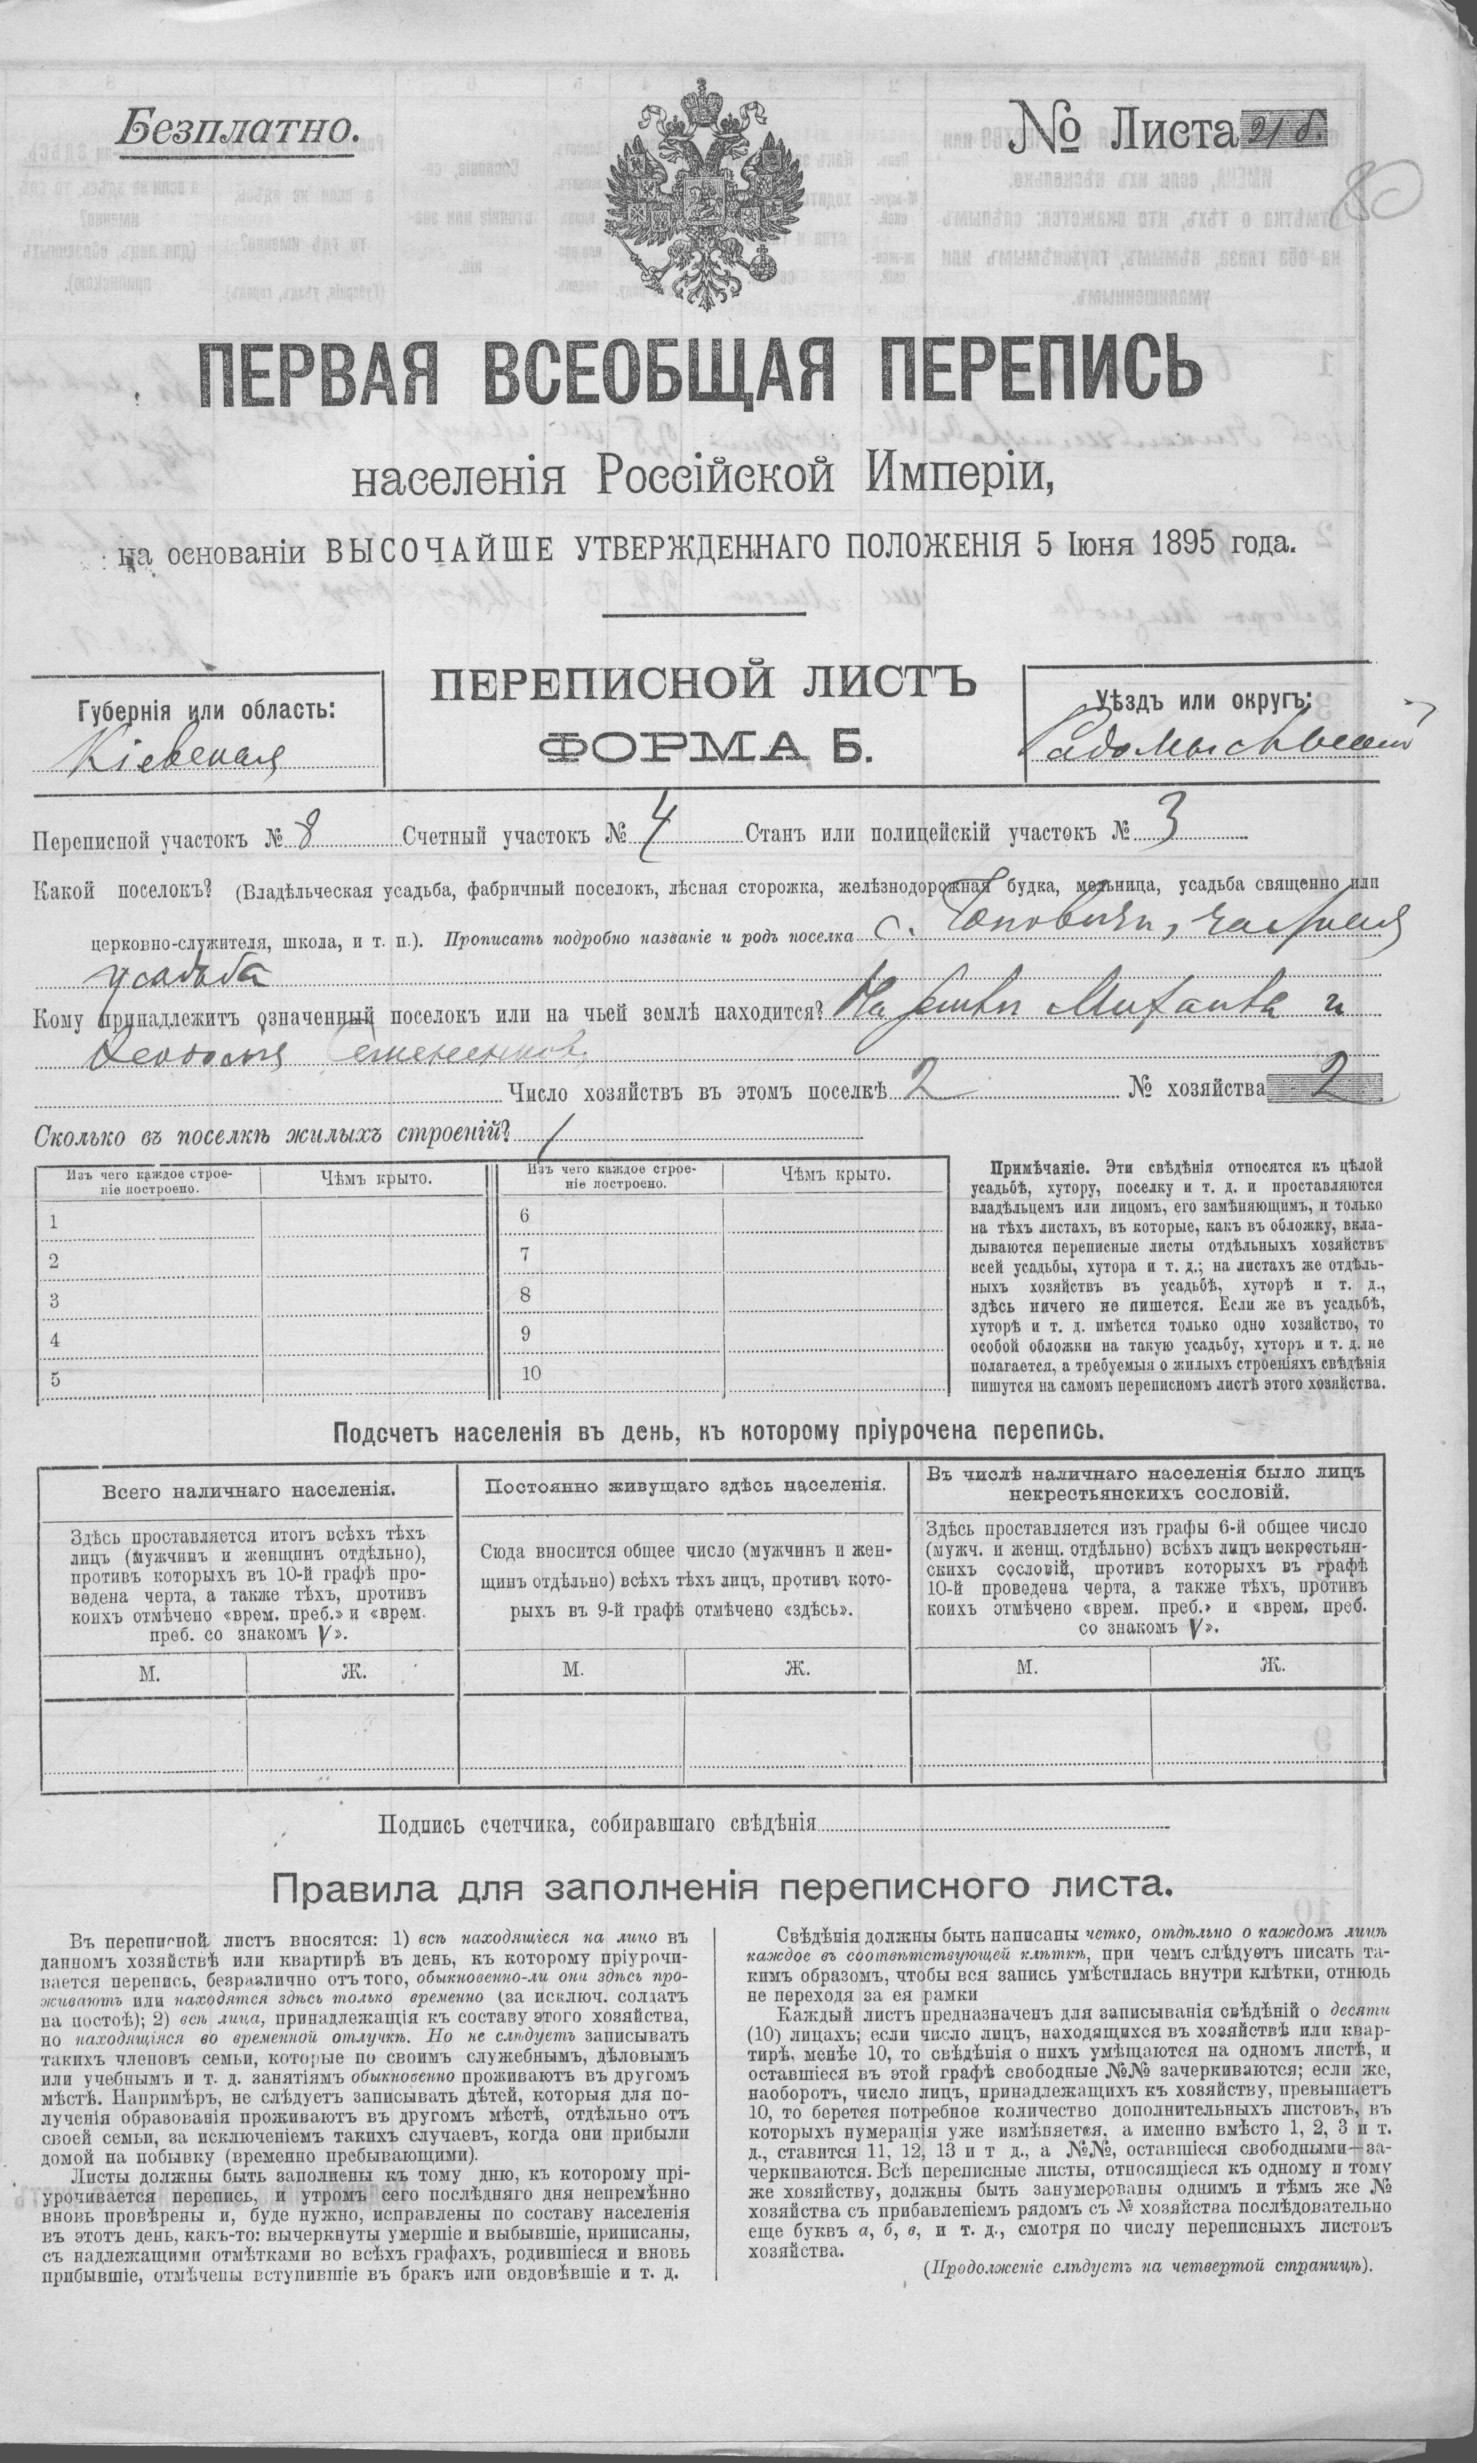 Безплатно.
№ Листа 21 б.
80
ПЕРВАЯ ВСЕОБЩАЯ ПЕРЕПИСЬ
населенія Россійской Имперіи,
на основаніи ВЫСОЧАЙШЕ УТВЕРЖДЕННАГО ПОЛОЖЕНІЯ 5 Іюня 1895 года.
ПЕРЕПИСНОЙ ЛИСТЪ
ФОРМА Б.
Губернія или область:
Кіевская
Уѣздъ или округъ:
Радомысльскій
Переписной участокъ № 8 Счетный участокъ № 4 Станъ или полицейскій участокъ № 3
Какой поселокъ? (Владѣльческая усадьба, фабричный поселокъ, лѣсная сторожка, желѣзнодорожная будка, мельница, усадьба священно или
церковно-служителя, школа, и т. п.). Прописать подробно названіе и родъ поселка с.
усадьба
Кому принадлежитъ означенный поселокъ или на чьей землѣ находится? На землѣ Михаила и
Число хозяйствъ въ этомъ поселкѣ 2 № хозяйства 2
Сколько въ поселкѣ жилыхъ строеній? 1
Изъ чего каждое строе-
ніе построено.
Чѣмъ крыто.
Изъ чего каждое строе-
ніе построено.
Чѣмъ крыто.
1 6
2 7
3 8
4 9
5 10
Примѣчаніе. Эти свѣдѣнія относятся къ цѣлой
усадьбѣ, хутору, поселку и т. д. и проставляются
владѣльцемъ или лицомъ, его замѣняющимъ, и только
на тѣхъ листахъ, въ которые, какъ въ обложку, вкла-
дываются переписные листы отдѣльныхъ хозяйствъ
всей усадьбы, хутора и т. д.; на листахъ же отдѣль-
ныхъ хозяйствъ въ усадьбѣ, хуторѣ и т. д.,
здѣсь ничего не пишется. Если же въ усадьбѣ,
хуторѣ и т. д. имѣется только одно хозяйство, то
особой обложки на такую усадьбу, хуторъ и т. д. не
полагается, а требуемыя о жилыхъ строеніяхъ свѣдѣнія
пишутся на самомъ переписномъ листѣ этого хозяйства.
Подсчетъ населенія въ день, къ которому пріурочена перепись.
Всего наличнаго населенія.
Здѣсь проставляется итогъ всѣхъ тѣхъ
лицъ (мужчинъ и женщинъ отдѣльно),
противъ которыхъ въ 10-й графѣ про-
ведена черта, а также тѣхъ, противъ
коихъ отмѣчено «врем. преб.» и «врем.
преб. со знакомъ V».
М. Ж.
Постоянно живущаго здѣсь населенія.
Сюда вносится общее число (мужчинъ и жен-
щинъ отдѣльно) всѣхъ тѣхъ лицъ, противъ кото-
рыхъ въ 9-й графѣ отмѣчено «здѣсь».
М. Ж.
Въ числѣ наличнаго населенія было лицъ
некрестьянскихъ сословій.
Здѣсь проставляется изъ графы 6-й общее число
(мужч. и женщ. отдѣльно) всѣхъ лицъ некрестьян-
скихъ сословій, противъ которыхъ въ графѣ
10-й проведена черта, а также тѣхъ, противъ
коихъ отмѣчено «врем. преб.» и «врем. преб.
со знакомъ V».
М. Ж.
Подпись счетчика, собиравшаго свѣдѣнія
Правила для заполненія переписного листа.
Въ переписной листъ вносятся: 1) всѣ находящіеся на лицо въ
данномъ хозяйствѣ или квартирѣ въ день, къ которому пріурочи-
вается перепись, безразлично отъ того, обыкновенно-ли они здѣсь про-
живаютъ или находятся здѣсь только временно (за исключ. солдатъ
на постоѣ); 2) всѣ лица, принадлежащія къ составу этого хозяйства,
но находящіяся во временной отлучкѣ. Но не слѣдуетъ записывать
такихъ членовъ семьи, которые по своимъ служебнымъ, дѣловымъ
или учебнымъ и т. д. занятіямъ обыкновенно проживаютъ въ другомъ
мѣстѣ. Напримѣръ, не слѣдуетъ записывать дѣтей, которыя для по-
лученія образованія проживаютъ въ другомъ мѣстѣ, отдѣльно отъ
своей семьи, за исключеніемъ такихъ случаевъ, когда они прибыли
домой на побывку (временно пребывающими).
Листы должны быть заполнены къ тому дню, къ которому прі-
урочивается перепись, и утромъ сего послѣдняго дня непремѣнно
вновь провѣрены и, буде нужно, исправлены по составу населенія
въ этотъ день, какъ-то: вычеркнуты умершіе и выбывшіе, приписаны,
съ надлежащими отмѣтками во всѣхъ графахъ, родившіеся и вновь
прибывшіе, отмѣчены вступившіе въ бракъ или овдовѣвшіе и т. д.
Свѣдѣнія должны быть написаны четко, отдѣльно о каждомъ лицѣ
каждое въ соотвѣтствующей клѣткѣ, при чемъ слѣдуетъ писать та-
кимъ образомъ, чтобы вся запись умѣстилась внутри клѣтки, отнюдь
не переходя за ея рамки
Каждый листъ предназначенъ для записыванія свѣдѣній о десяти
(10) лицахъ; если число лицъ, находящихся въ хозяйствѣ или квар-
тирѣ, менѣе 10, то свѣдѣнія о нихъ умѣщаются на одномъ листѣ, и
оставшіеся въ этой графѣ свободные №№ зачеркиваются; если же,
наоборотъ, число лицъ, принадлежащихъ къ хозяйству, превышаетъ
10, то берется потребное количество дополнительныхъ листовъ, въ
которыхъ нумерація уже измѣняется, а именно вмѣсто 1, 2, 3 и т.
д., ставится 11, 12, 13 и т д., а №№, оставшіеся свободными—за-
черкиваются. Всѣ переписные листы, относящіеся къ одному и тому
же хозяйству, должны быть занумерованы однимъ и тѣмъ же №
хозяйства съ прибавленіемъ рядомъ съ № хозяйства послѣдовательно
еще буквъ а, б, в, и т. д., смотря по числу переписныхъ листовъ
хозяйства.
(Продолженіе слѣдуетъ на четвертой страницѣ).